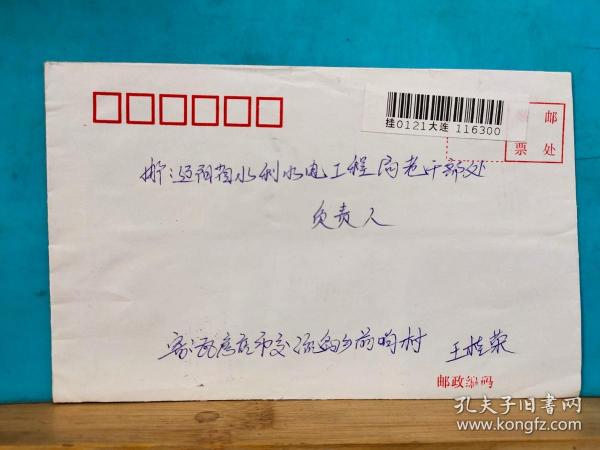 挂0121大连 116300
邮
票 处
水利水电工程局老干部处
负责人
瓦房店市交流岛乡前哨村 王桂荣
邮政编码
孔夫子旧书网
www.kongfz.com